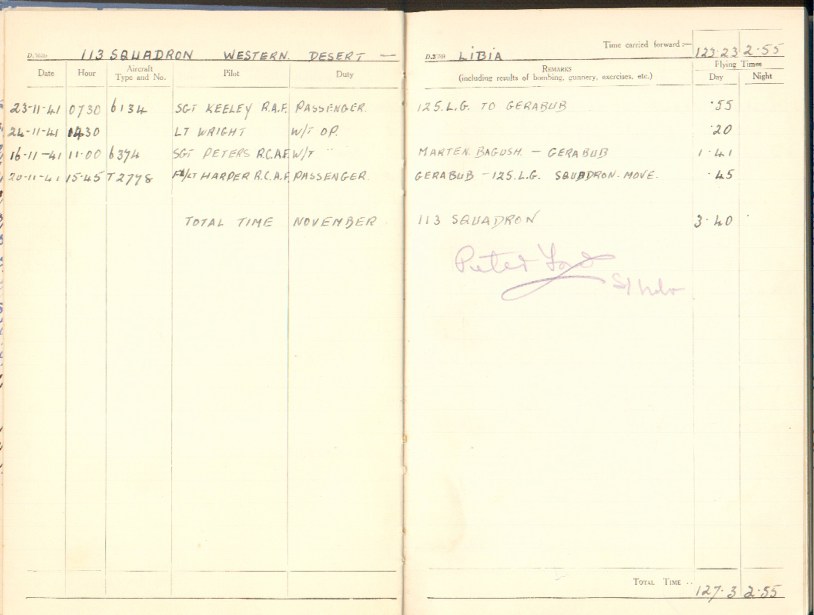 113 SQUADRON WESTERN. DESERT — LIBIA Time carried forward:— 123·23 2·55
Date Hour Aircraft Type and No. Pilot Duty REMARKS (including results of bombing, gunnery, exercises, etc.) Flying Times Day Night
23-11-41 0730 6134 SGT KEELEY R.A.F. PASSENGER. 125.L.G. TO GERABUB ·55
24-11-41 1430 LT WRIGHT W/T OP. ·20
16-11-41 11·00 6394 SGT PETERS R.C.A.F. W/T " MARTEN. BAGUSH. — GERABUB 1·41
20-11-41 15·45 T2778 F/LT HARPER R.C.A.F. PASSENGER. GERABUB — 125.L.G. SQUADRON. MOVE. ·45
TOTAL TIME NOVEMBER 113 SQUADRON 3·40
Peter
TOTAL TIME .. 127·3 2·55